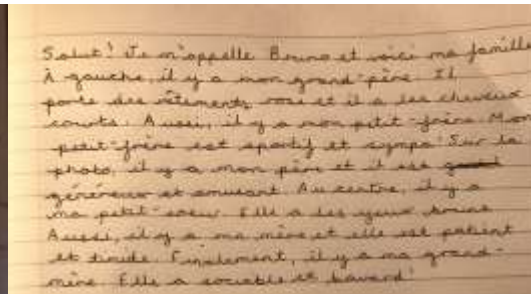 Salut! Je m'appelle Bruno et voici ma famille
À gauche, il y a mon grand-père. Il
porte des vêtements et il a les cheveux
courts. Aussi, il y a mon petit-frère. Mon
petit-frère est sportif et sympa. Sur la
photo, il y a mon père et il est
généreux et amusant. Au centre, il y a
ma petit-soeur. Elle a les yeux bruns
Aussi, il y a ma mère et elle est patient
et timide. Finalement, il y a ma grand-
mère. Elle a sociable et bavard!